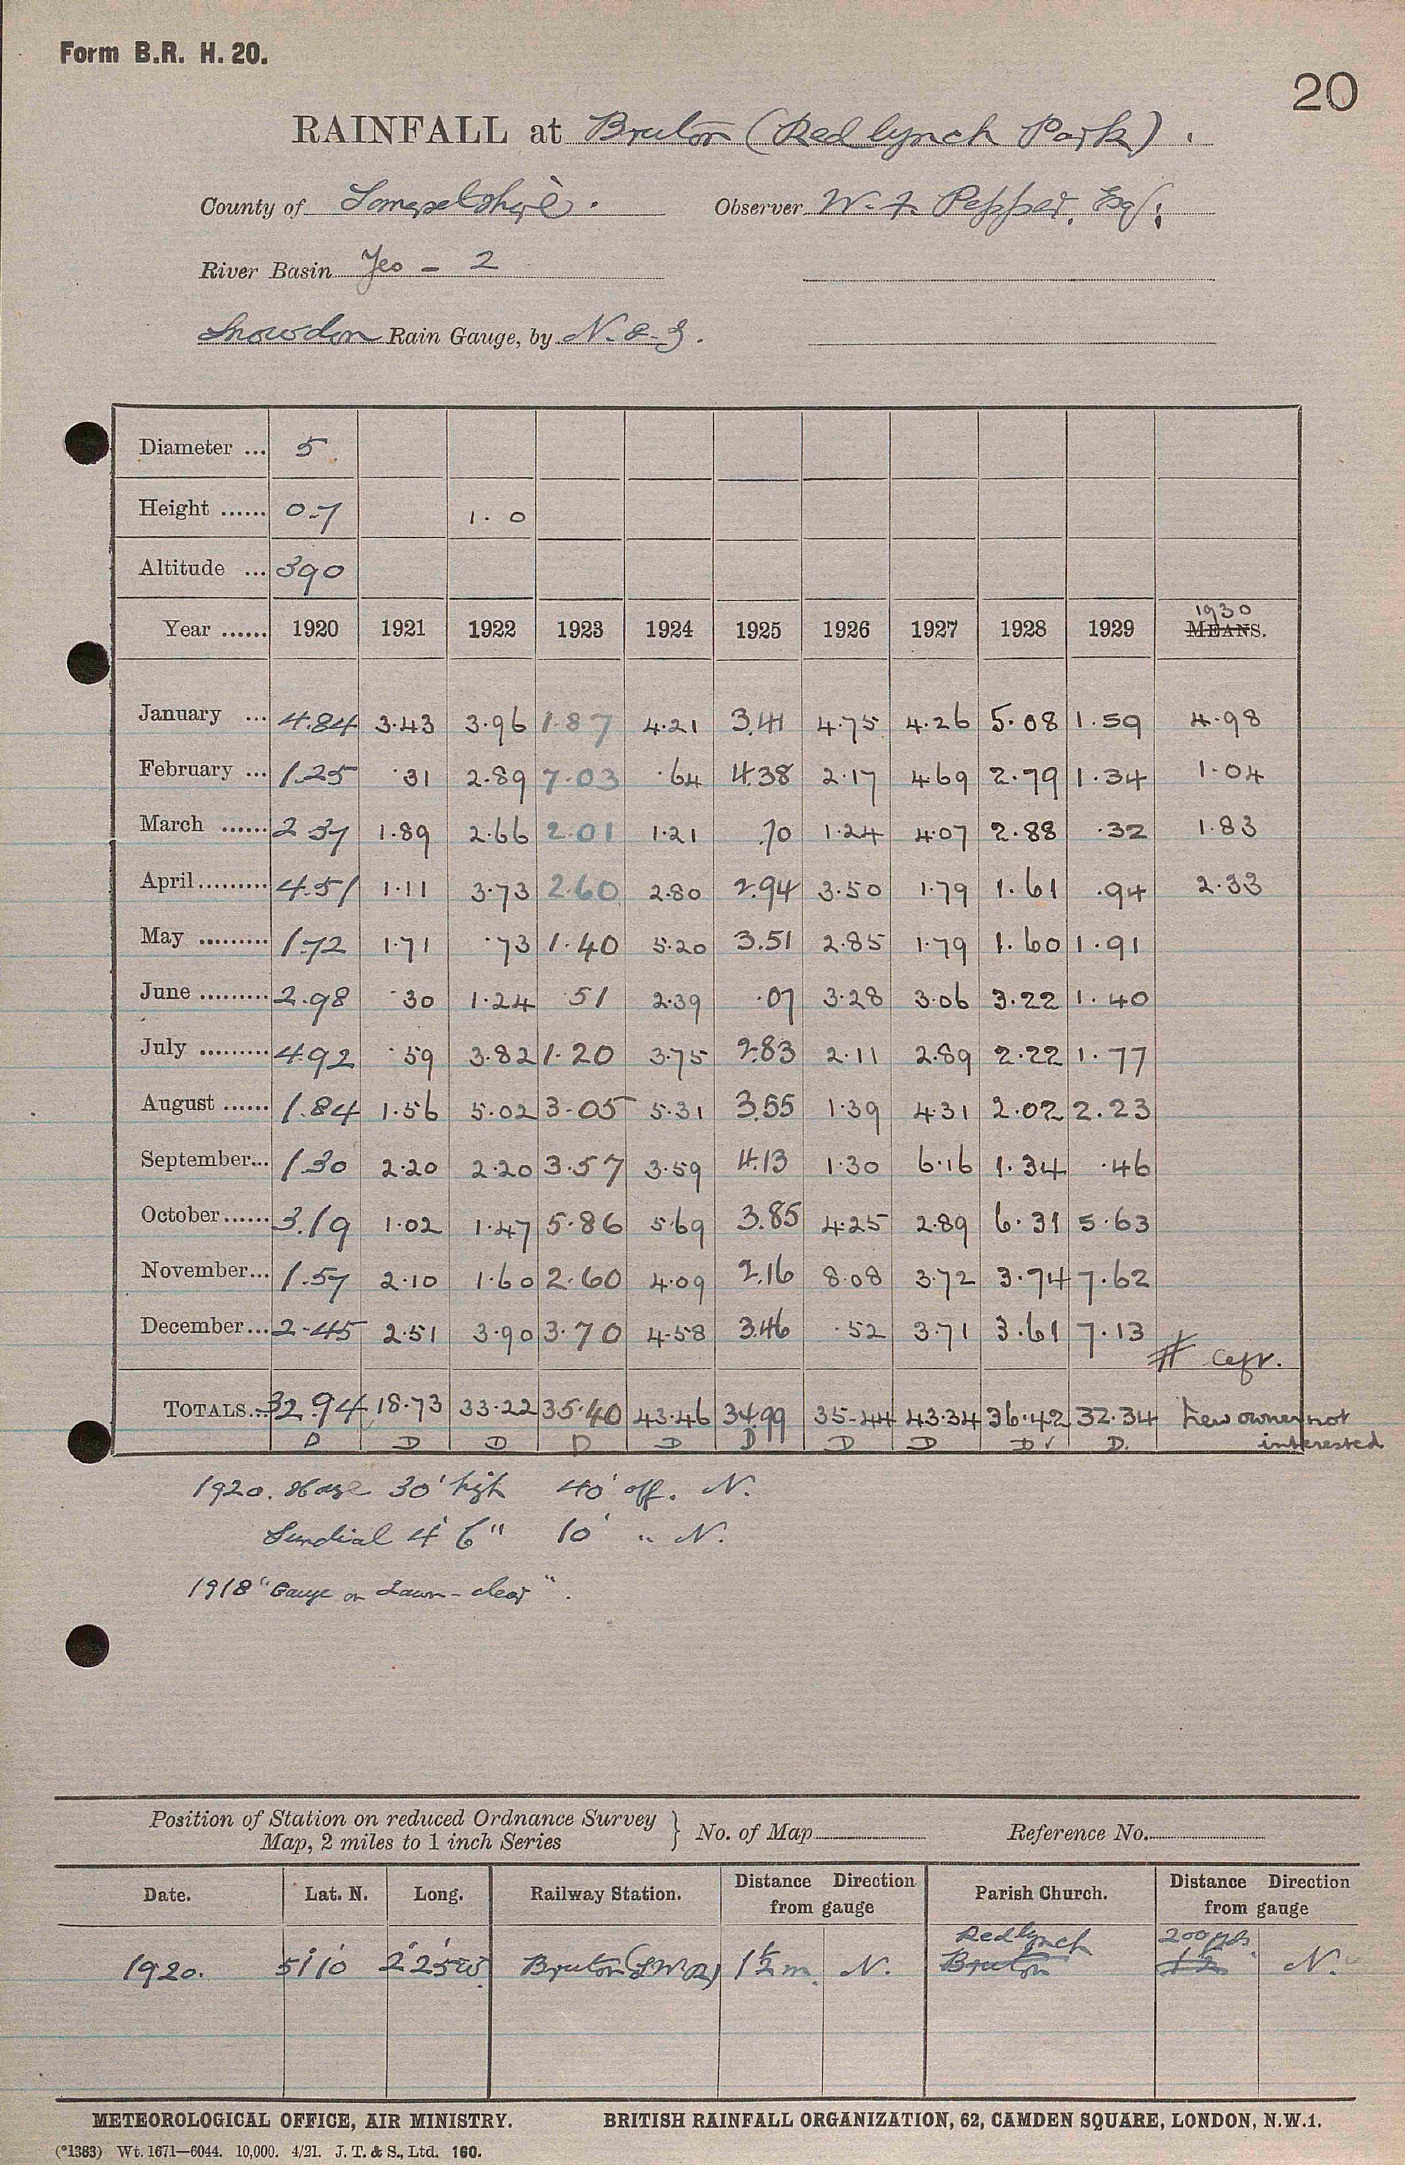 Form B.R. H. 20.
20
RAINFALL at Bruton (Redlynch Park).
County of Somersetshire. Observer W. F. Pepper, Esq;
River Basin Yeo - 2
Snowdon Rain Gauge, by N. & Z.
Diameter ... 5
Height ...... 0.7 1.0
Altitude ... 390
1930
Year ...... 1920 1921 1922 1923 1924 1925 1926 1927 1928 1929 MEANS.
January ... 4.84 3.43 3.96 1.87 4.21 3.41 4.75 4.26 5.08 1.59 4.98
February ... 1.25 .31 2.89 7.03 .64 4.38 2.17 4.69 2.79 1.34 1.04
March ...... 2.37 1.89 2.66 2.01 1.21 .70 1.24 4.07 2.88 .32 1.83
April ......... 4.51 1.11 3.73 2.60 2.80 2.94 3.50 1.79 1.61 .94 2.33
May ......... 1.72 1.71 .73 1.40 5.20 3.51 2.85 1.79 1.60 1.91
June ......... 2.98 .30 1.24 .51 2.39 .07 3.28 3.06 3.22 1.40
July ......... 4.92 .59 3.82 1.20 3.75 2.83 2.11 2.89 2.22 1.77
August ...... 1.84 1.56 5.02 3.05 5.31 3.55 1.39 4.31 2.02 2.23
September... 1.30 2.20 2.20 3.57 3.59 4.13 1.30 6.16 1.34 .46
October...... 3.19 1.02 1.47 5.86 5.69 3.85 4.25 2.89 6.31 5.63
November... 1.57 2.10 1.60 2.60 4.09 2.16 8.08 3.72 3.74 7.62
December... 2.45 2.51 3.90 3.70 4.58 3.46 .52 3.71 3.61 7.13
TOTALS... 32.94 18.73 33.22 35.40 43.46 34.99 35.44 43.34 36.42 32.34 New owner not
D D D D D D D D D ✓ D. interested
1920. House 30' high 40' off. N.
Sundial 4' 6" 10' " N.
1918 "Gauge on Lawn - clear".
Position of Station on reduced Ordnance Survey
Map, 2 miles to 1 inch Series } No. of Map Reference No.
Date. Lat. N. Long. Railway Station. Distance Direction from gauge Parish Church. Distance Direction from gauge
Redlynch 200 yds.
1920. 51°10' 2°25'W. Bruton (S.W.R) 1½ m. N. Bruton 1½ N.
METEOROLOGICAL OFFICE, AIR MINISTRY. BRITISH RAINFALL ORGANIZATION, 62, CAMDEN SQUARE, LONDON, N.W.1.
(*1383) Wt. 1671—6044. 10,000. 4/21. J. T. & S., Ltd. 160.